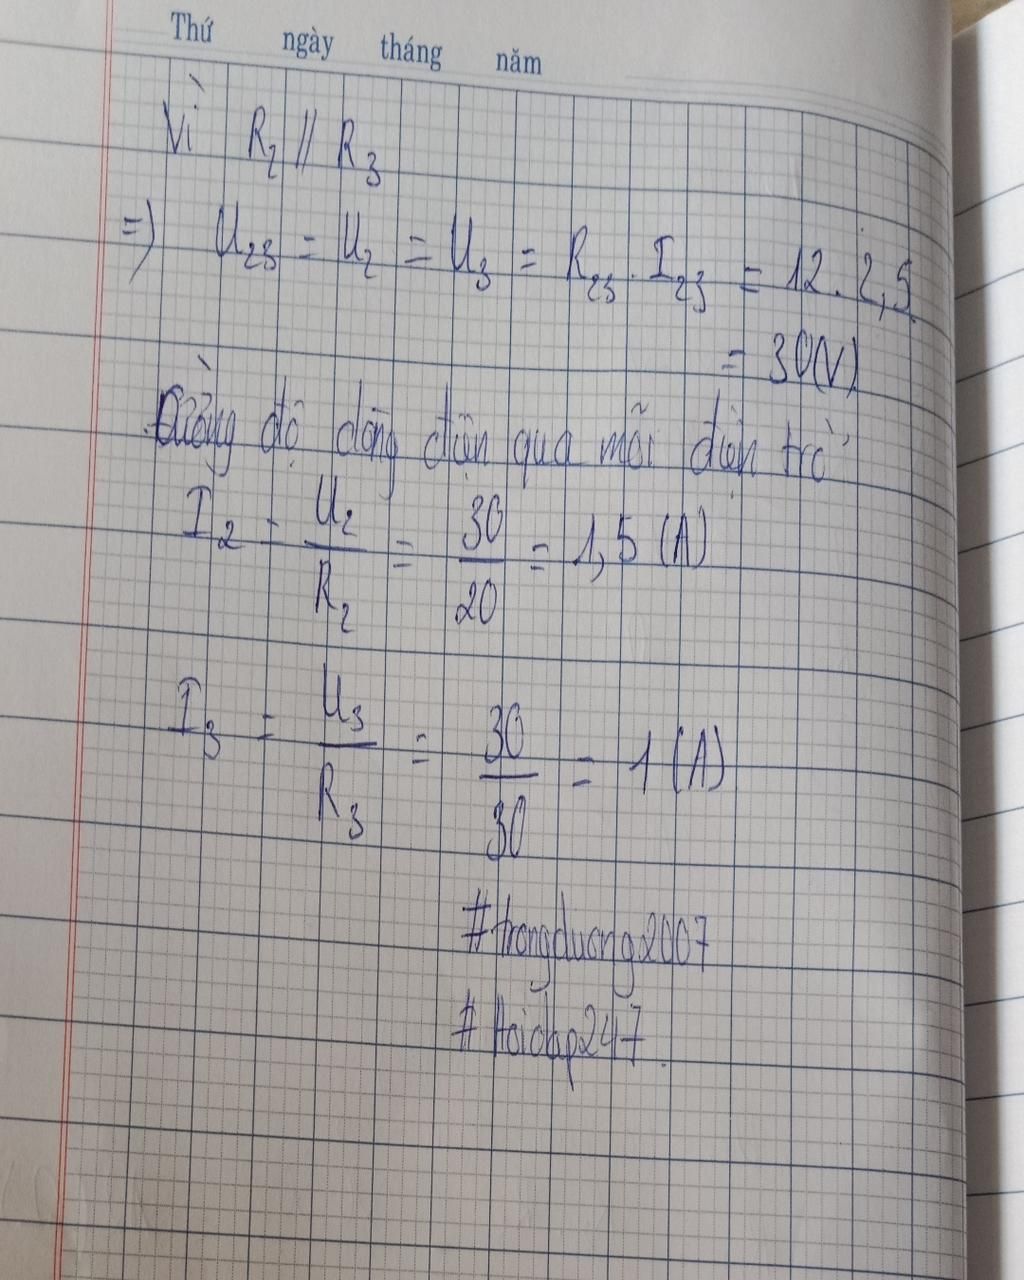 Thứ ngày tháng năm
Vì R₂ // R₃
=) U₂₃ = U₂ = U₃ = R₂₃ . I₂₃ = 12 . 2,5
= 30(V)
Cường độ dòng điện qua mỗi điện trở
I₂ = U₂/R₂ = 30/20 = 1,5 (A)
I₃ = U₃/R₃ = 30/30 = 1 (A)
#trongduong2007
#Hoidap247.